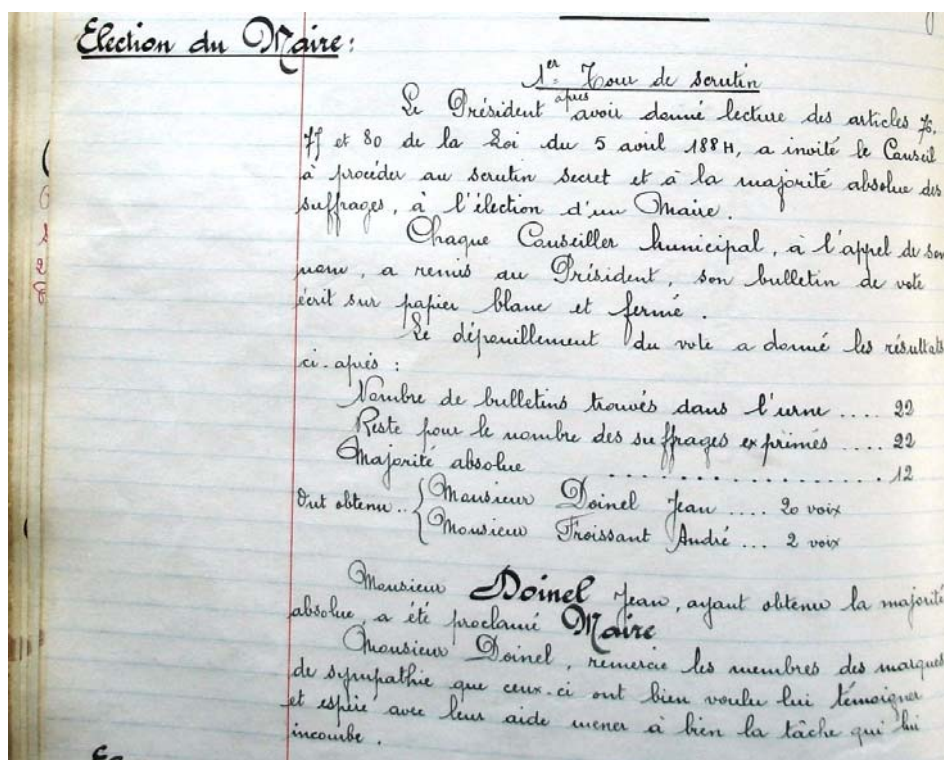 Election du Maire :
1er Tour de scrutin
Le Président après avoir donné lecture des articles 76,
77 et 80 de la Loi du 5 avril 1884, a invité le Conseil
à procéder au scrutin secret et à la majorité absolue des
suffrages, à l'élection d'un Maire.
Chaque Conseiller Municipal, à l'appel de son
nom, a remis au Président, son bulletin de vote
écrit sur papier blanc et fermé.
Le dépouillement du vote a donné les résultats
ci-après :
Nombre de bulletins trouvés dans l'urne .... 22
Reste pour le nombre des suffrages exprimés .... 22
Majorité absolue .................... 12
Ont obtenu .. { Monsieur Doinel Jean .... 20 voix
Monsieur Froissant André ... 2 voix
Monsieur Doinel Jean, ayant obtenu la majorité
absolue, a été proclamé Maire
Monsieur Doinel, remercie les membres des marques
de sympathie que ceux-ci ont bien voulu lui témoigner
et espère avec leur aide mener à bien la tâche qui lui
incombe.